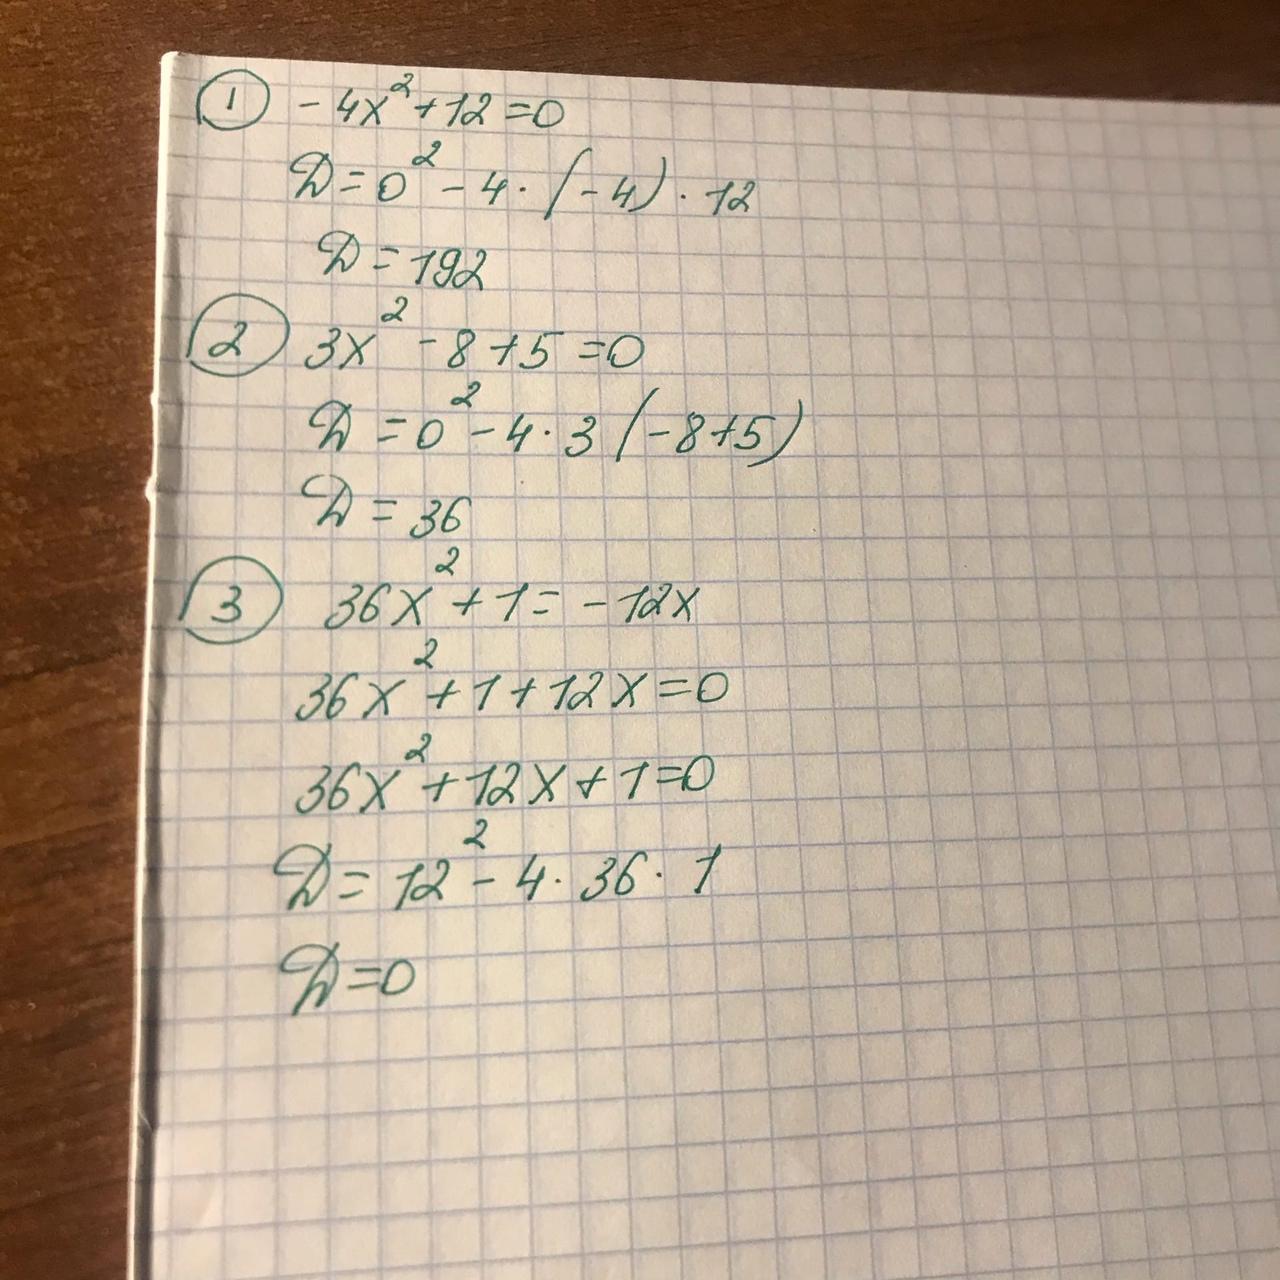 ① -4x²+12=0
D=0²-4·(-4)·12
D=192
② 3x²-8+5=0
D=0²-4·3(-8+5)
D=36
③ 36x²+1=-12x
36x²+1+12x=0
36x²+12x+1=0
D=12²-4·36·1
D=0